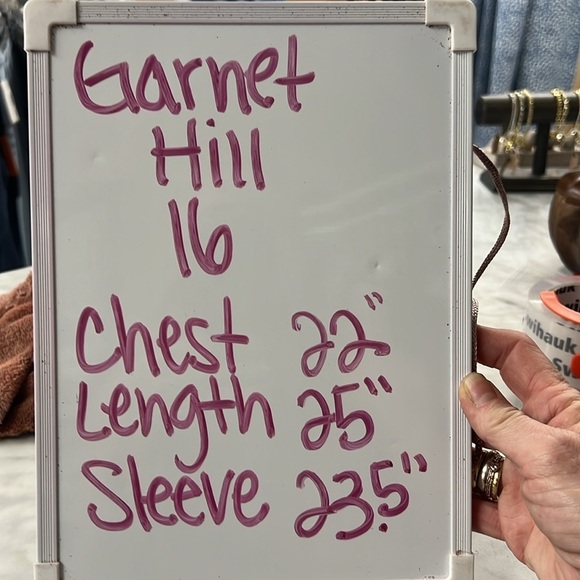 Garnet
Hill
16
Chest 22"
Length 25"
Sleeve 23.5"
wihauk
Sw